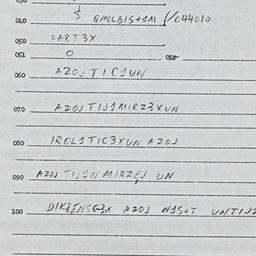 040 $ QMOLBIS+1M (/044010
050 FART3X
051 O 052
060 AZOJ TIC1UN
070 AZOJ TIJ1MIRZ3XUN
080 IROL1TIC3XUN AZOJ
090 AZOJ TIJ1N MIRZEJ UN
100 DIK8ENSG3X AZOJ N1S+T UNTIJ2